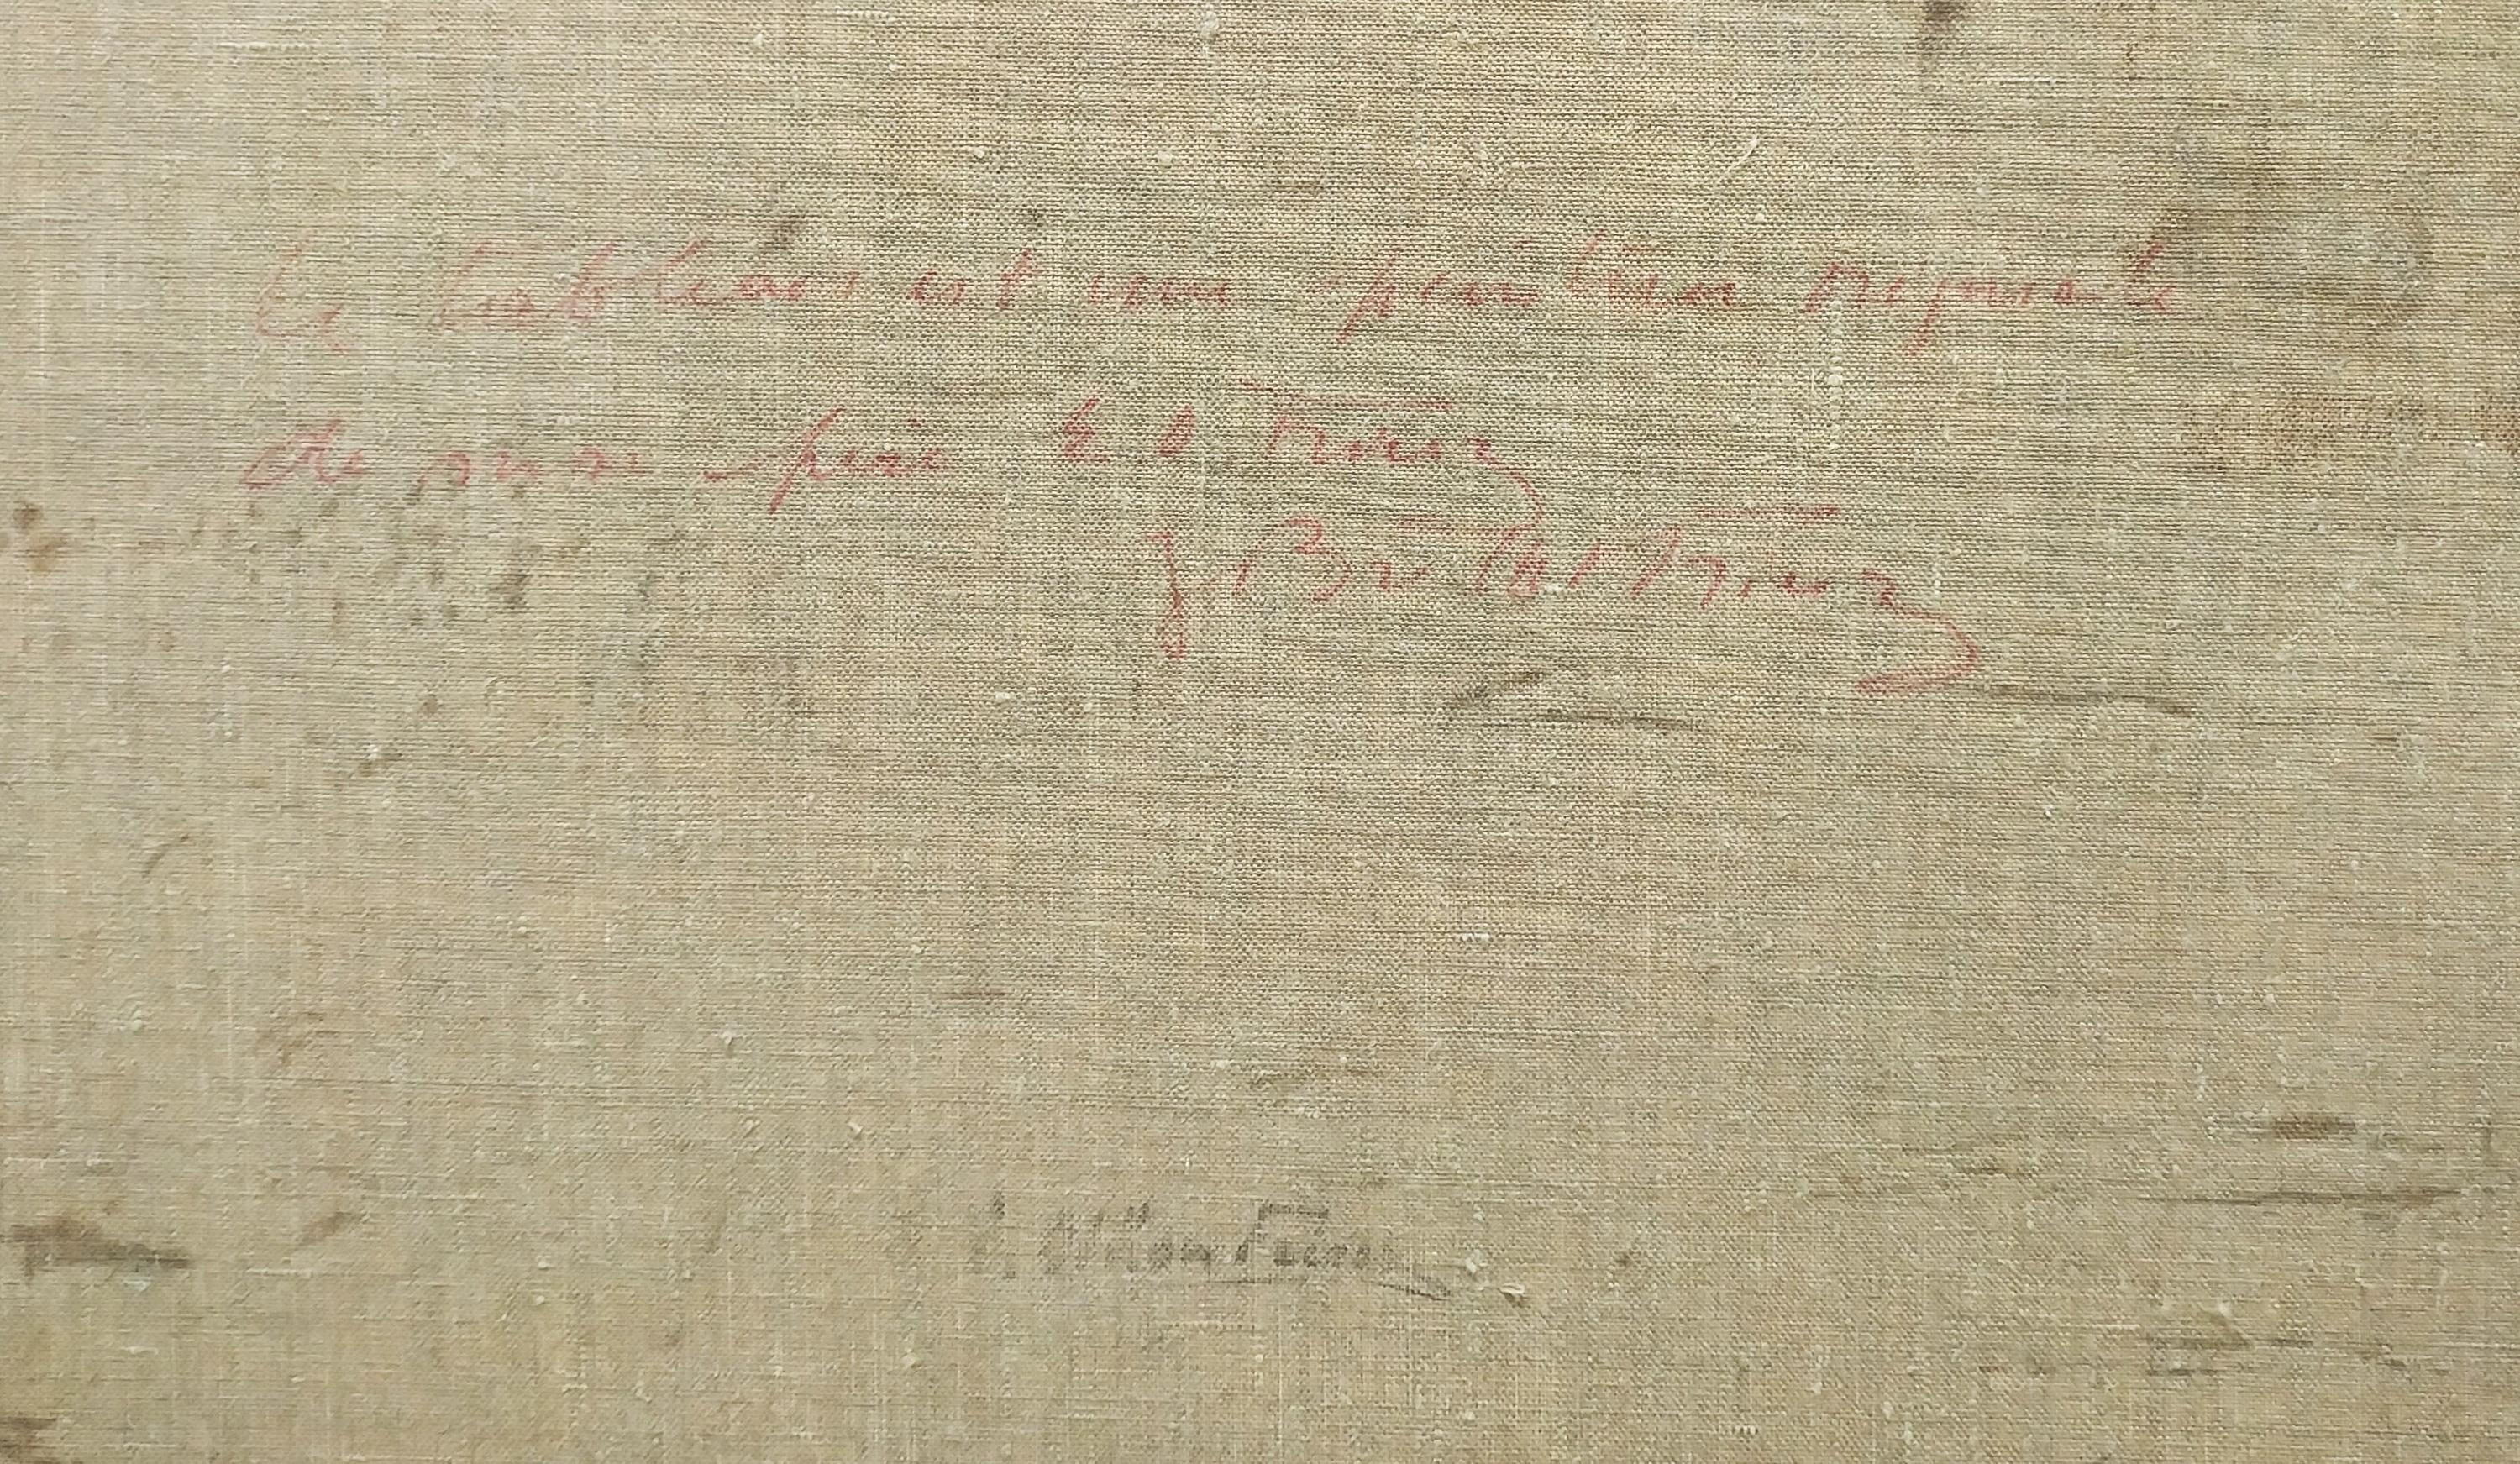 Ce tableau est une peinture originale
de mon père E O Friesz
J. Friesz
Othon Friesz